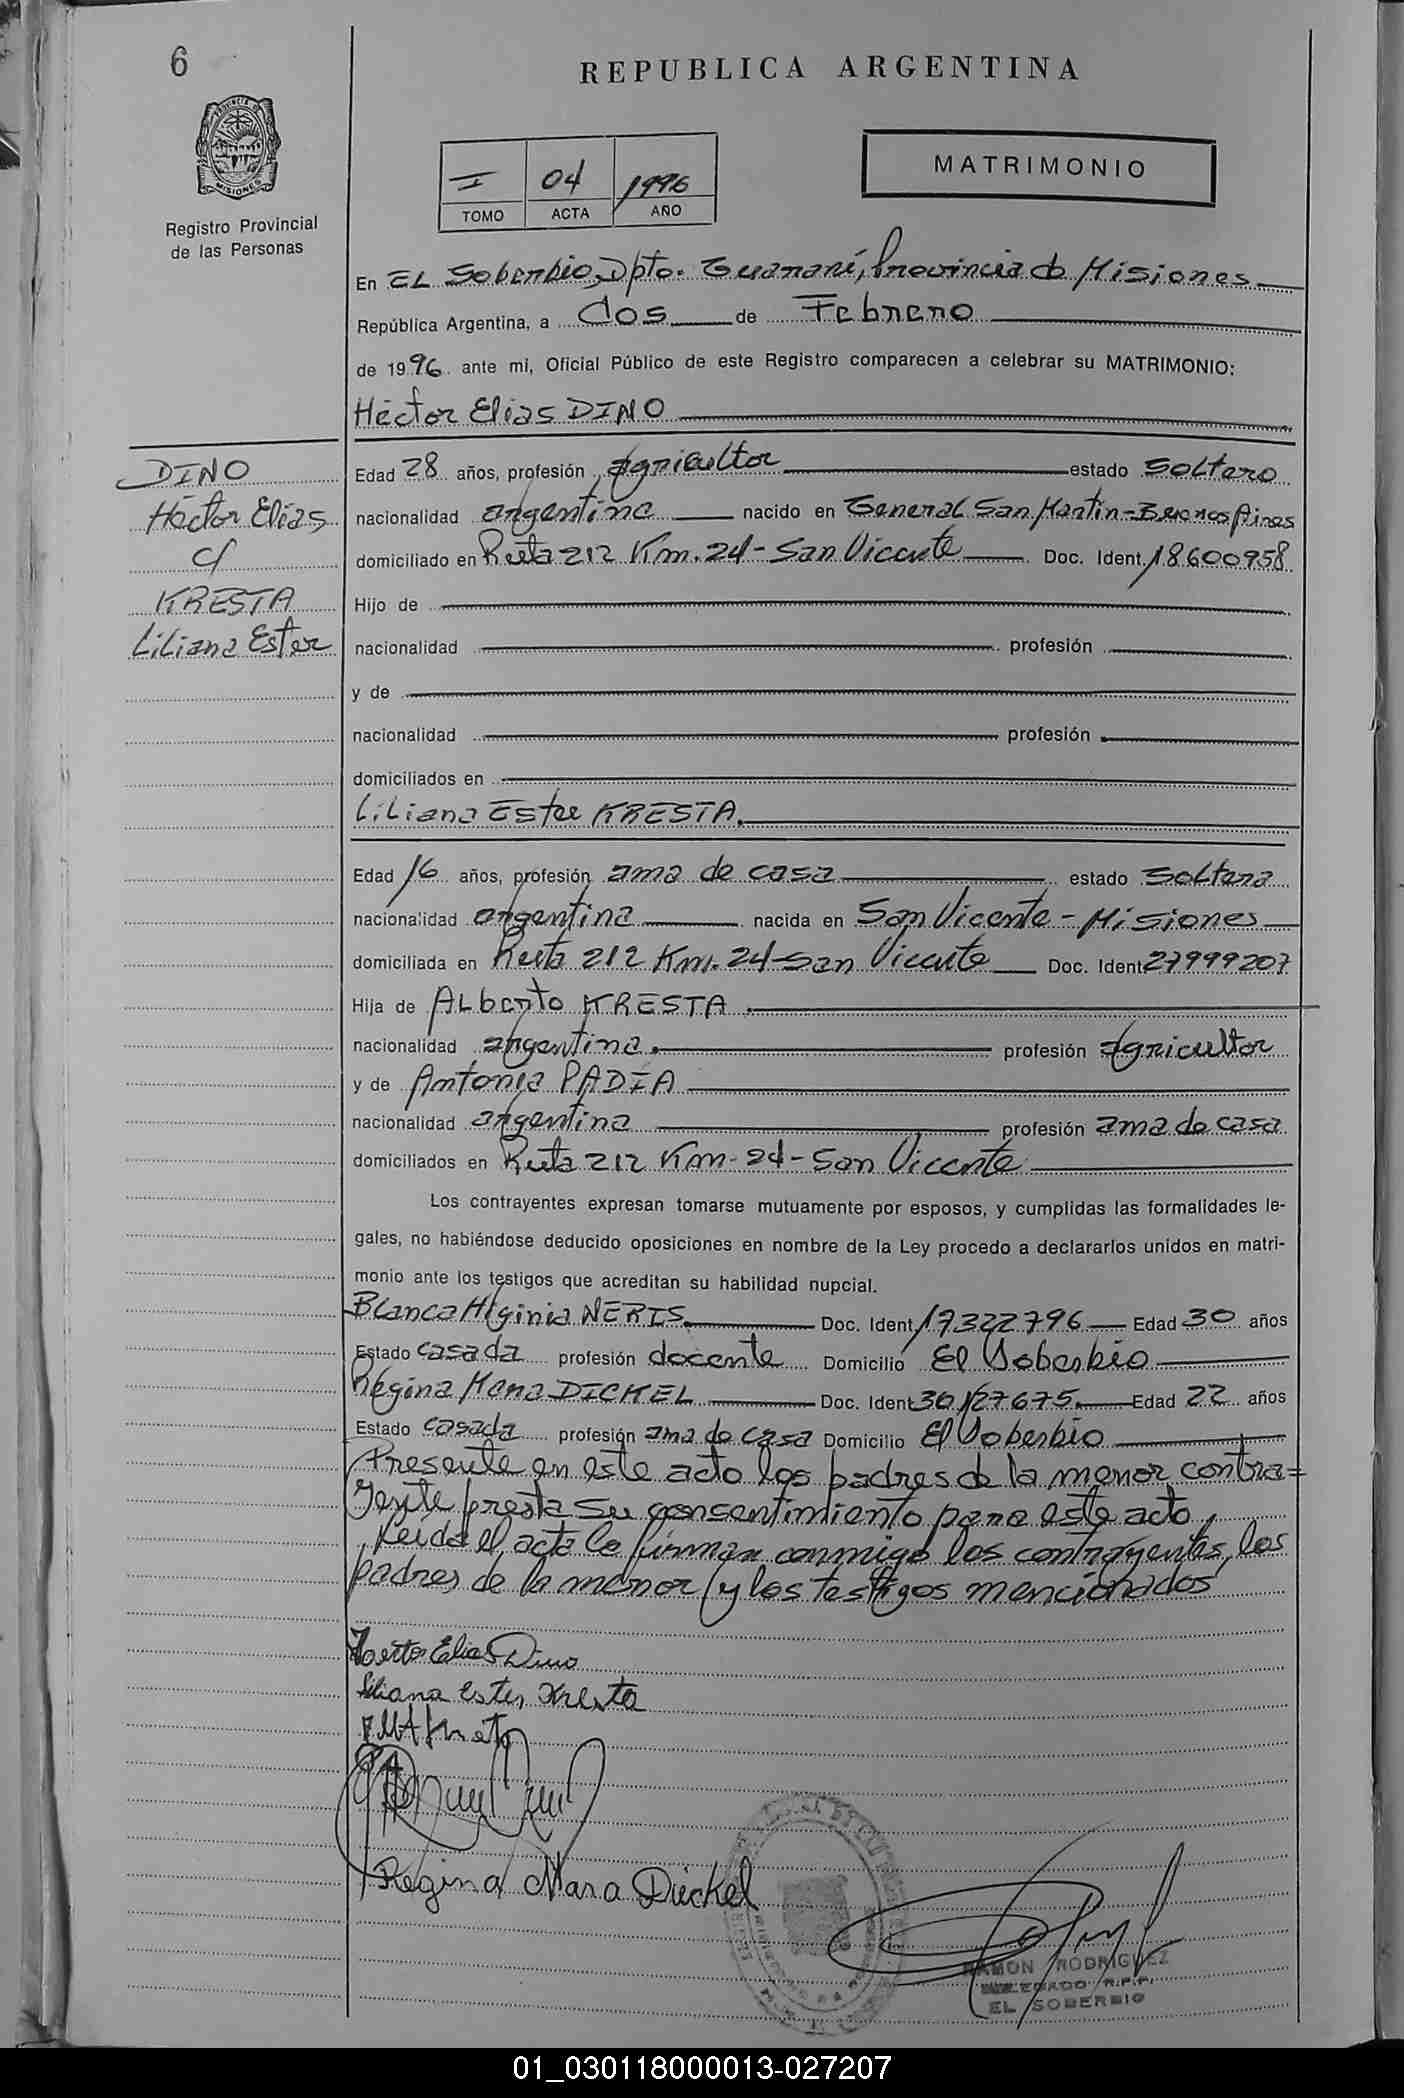 6
REPUBLICA ARGENTINA
PROVINCIA DE
MISIONES
Registro Provincial
de las Personas
I 04 1996
TOMO ACTA AÑO
MATRIMONIO
En EL Soberbio, Dpto. Guaraní, Provincia de Misiones
República Argentina, a dos de Febrero
de 1996 ante mi, Oficial Público de este Registro comparecen a celebrar su MATRIMONIO:
Héctor Elias DINO
DINO
Héctor Elías
c/
KRESTA
Liliana Ester
Edad 28 años, profesión agricultor estado soltero
nacionalidad argentina nacido en General San Martín-Buenos Aires
domiciliado en Ruta 212 Km. 24-San Vicente Doc. Ident. 18600958
Hijo de
nacionalidad profesión
y de
nacionalidad profesión
domiciliados en
Liliana Ester KRESTA.
Edad 16 años, profesión ama de casa estado soltera
nacionalidad argentina nacida en San Vicente - Misiones
domiciliada en Ruta 212 Km. 24-San Vicente Doc. Ident 27999207
Hija de Alberto KRESTA
nacionalidad argentina. profesión agricultor
y de Antonia PADÍA
nacionalidad argentina profesión ama de casa
domiciliados en Ruta 212 Km-24-San Vicente
Los contrayentes expresan tomarse mutuamente por esposos, y cumplidas las formalidades le-
gales, no habiéndose deducido oposiciones en nombre de la Ley procedo a declararlos unidos en matri-
monio ante los testigos que acreditan su habilidad nupcial.
Blanca Higinia NERIS. Doc. Ident. 17322796 Edad 30 años
Estado casada profesión docente Domicilio El Soberbio
Regina Mara DICKEL Doc. Ident 30127675. Edad 22 años
Estado casada profesión ama de casa Domicilio El Soberbio
Presente en este acto los padres de la menor contra=
yente presta su consentimiento para este acto,
Leída el acta la firman conmigo los contrayentes, los
padres de la menor y los testigos mencionados
Elias Dino
Liliana Ester Kresta
Regina Mara Dickel
RAMON RODRIGUEZ
DELEGADO R.P.P.
EL SOBERBIO
01_030118000013-027207